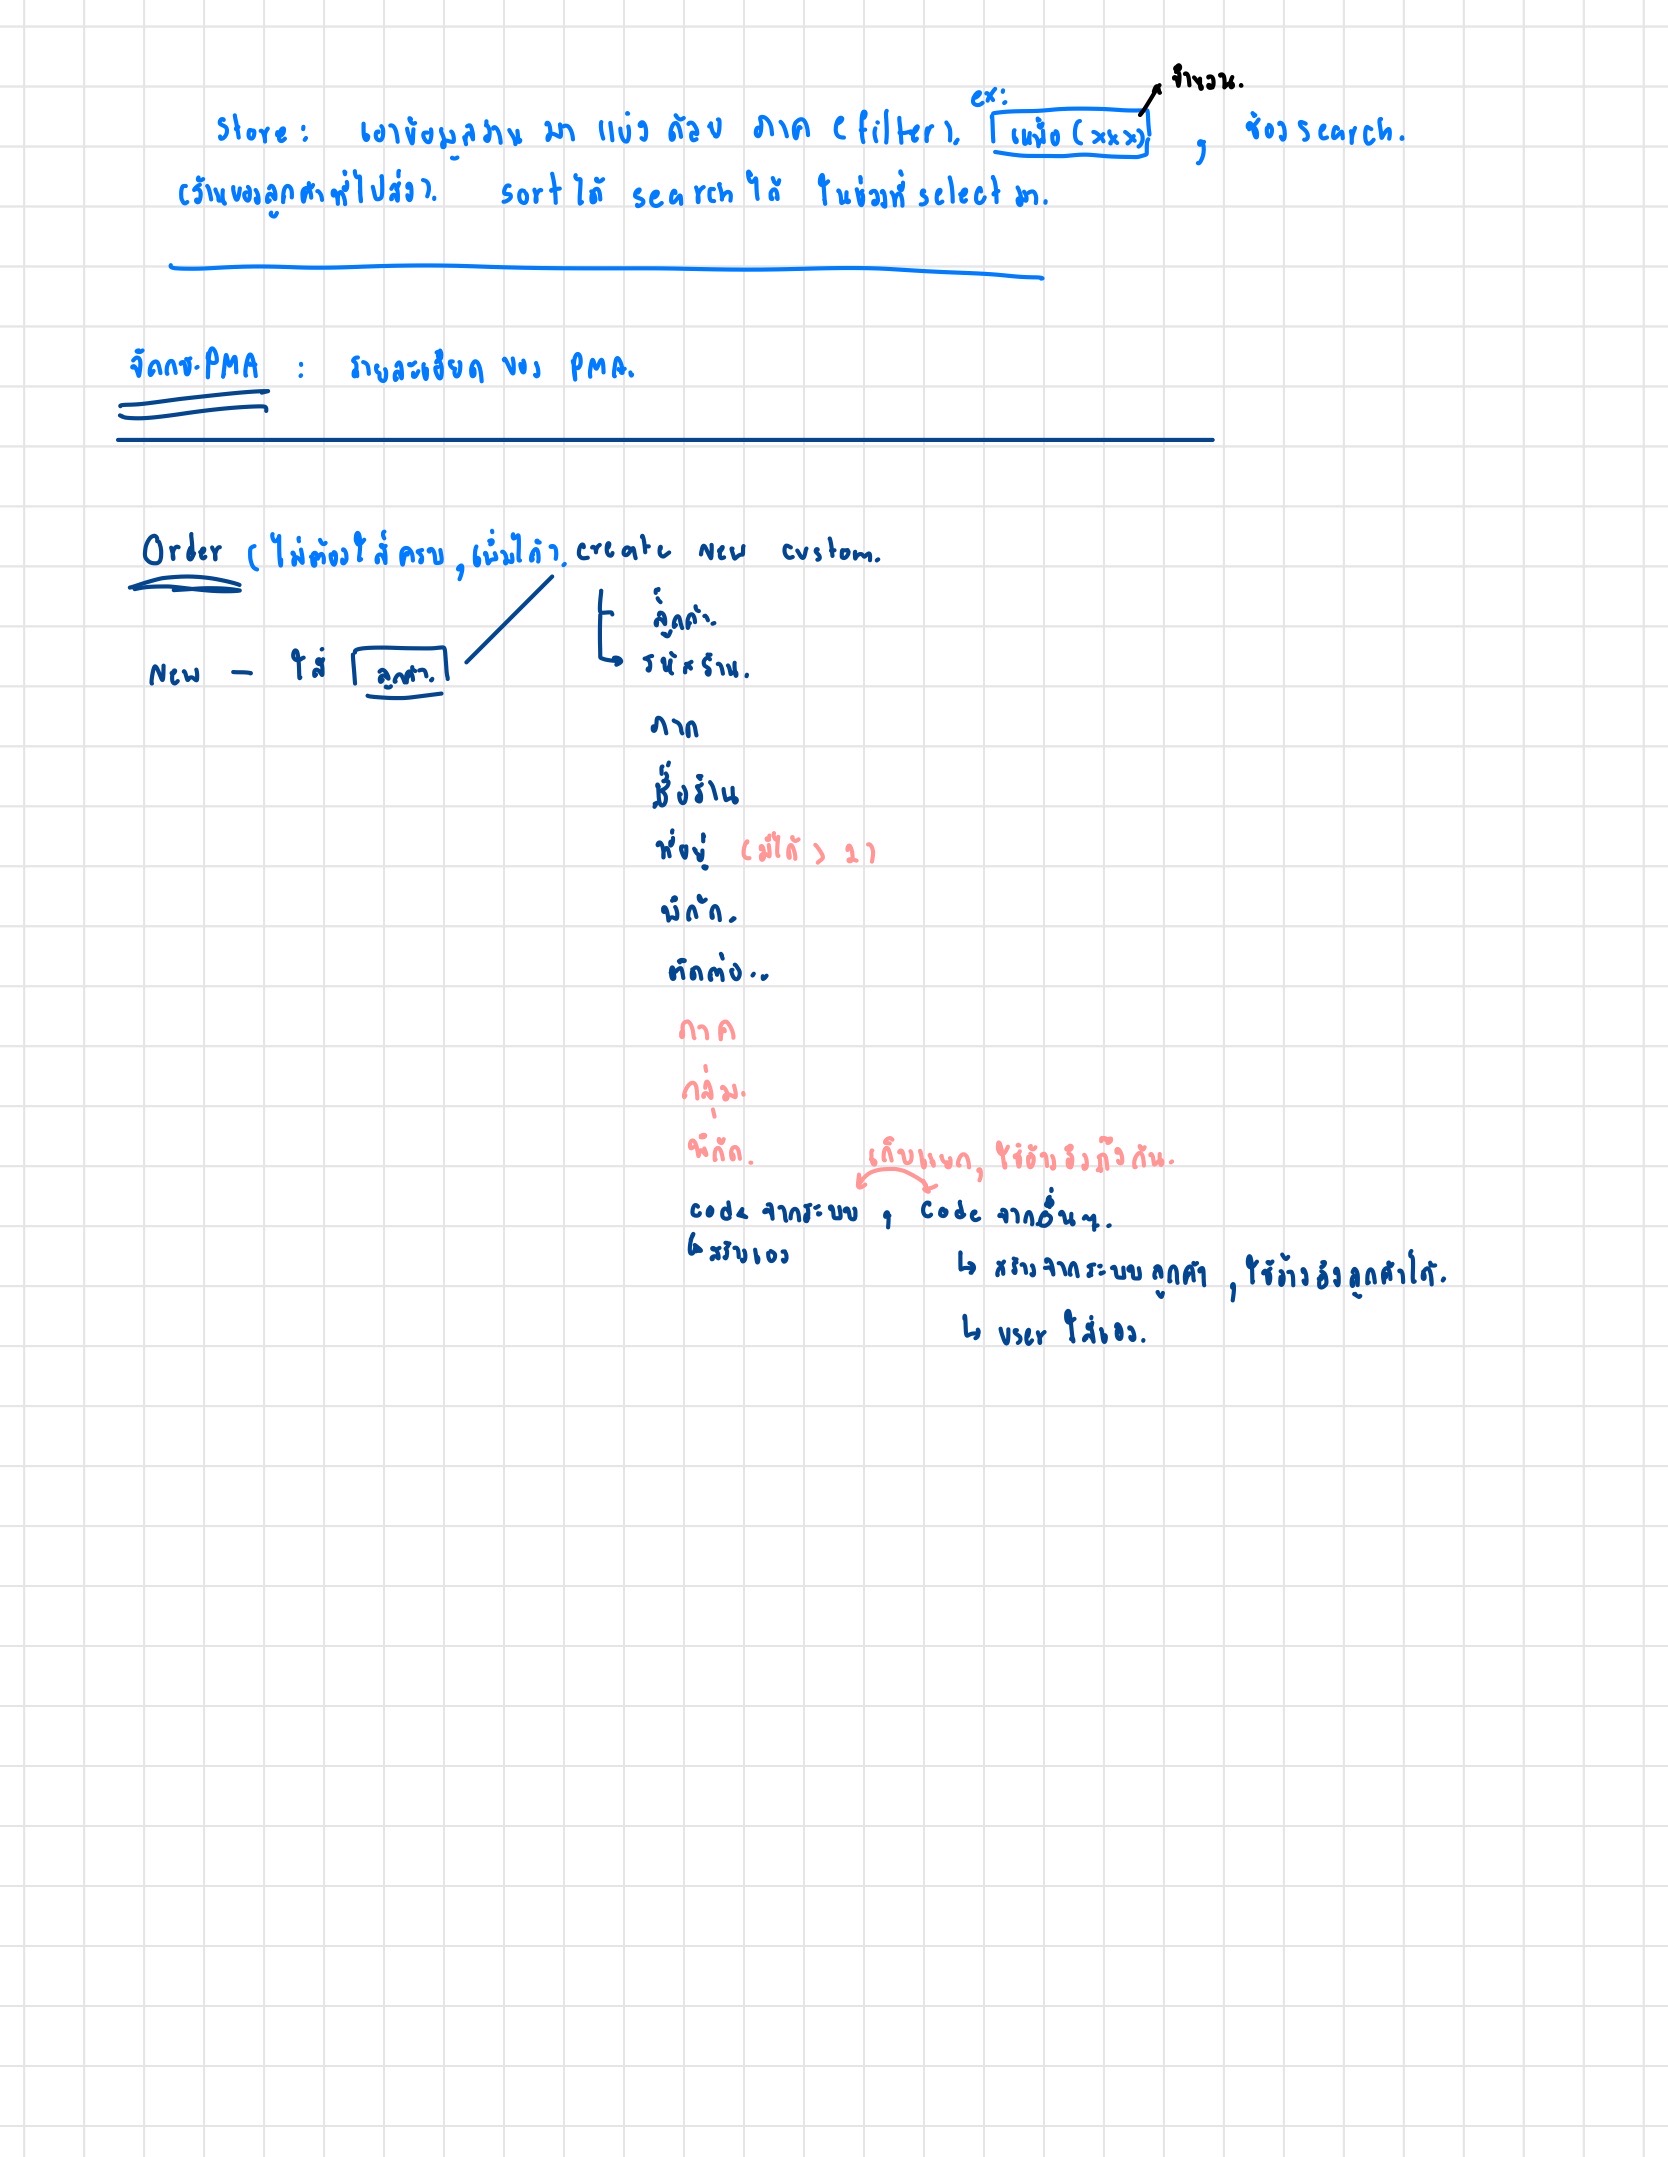 จำนวน.
Store: เอาข้อมูลร้าน มา แบ่ง ด้วย ภาค (filter). ex: เหนือ (xxx) , ช่อง search.
(ร้านของลูกค้าที่ไปส่ง). sort ได้ search ได้ ในช่วงที่ select มา.
จัดกช.PMA : รายละเอียด ของ PMA.
Order (ไม่ต้องใส่ครบ, เพิ่มได้). create new custom.
ลูกค้า.
New - ใส่ ลูกค้า.
รหัสร้าน.
ภาค
ชื่อร้าน
ที่อยู่ (มีได้ > 2)
พิกัด.
ติดต่อ..
ภาค
กลุ่ม.
พิกัด. เก็บแยก, ใช้อ้างอิงถึงกัน.
code จากระบบ , Code จากอื่นๆ.
↳ สร้างเอง
↳ สร้างจากระบบลูกค้า , ใช้อ้างอิงลูกค้าได้.
↳ user ใส่เอง.